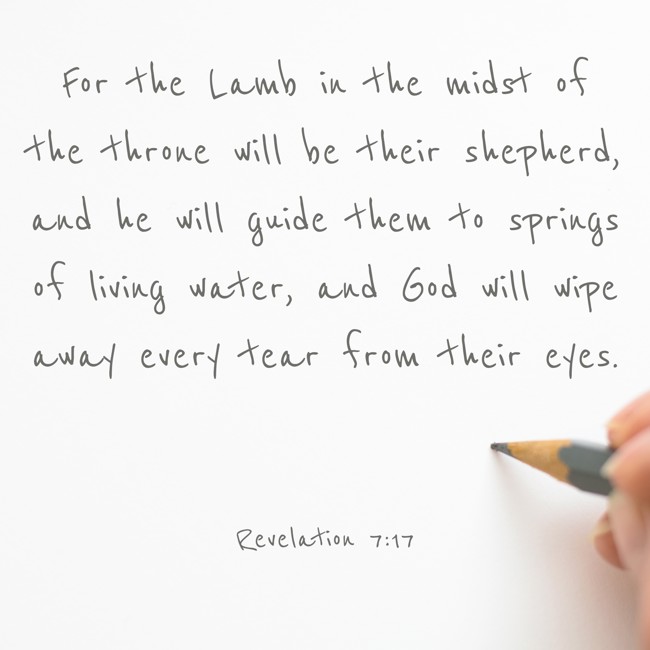 For the Lamb in the midst of
the throne will be their shepherd,
and he will guide them to springs
of living water, and God will wipe
away every tear from their eyes.
Revelation 7:17